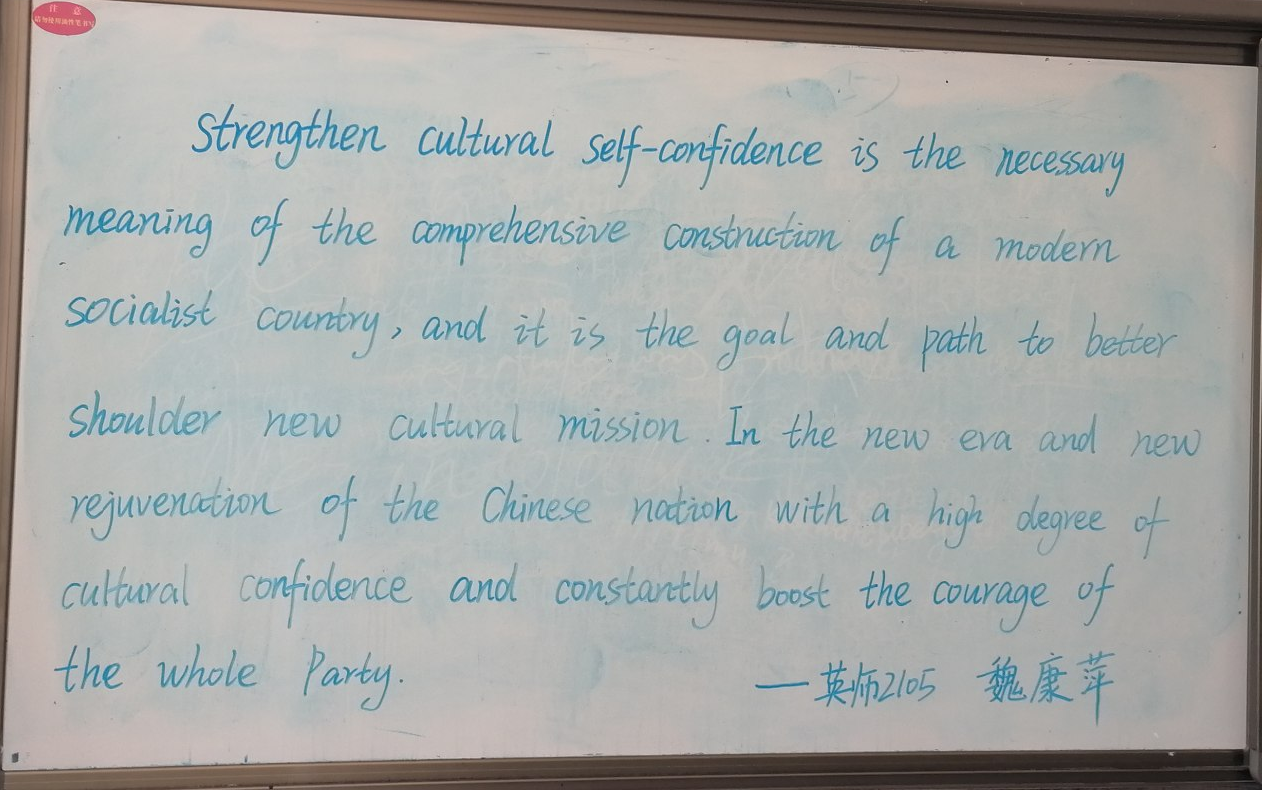 注 意
请勿使用油性笔书写
Strengthen cultural self-confidence is the necessary
meaning of the comprehensive construction of a modern
socialist country, and it is the goal and path to better
shoulder new cultural mission. In the new era and new
rejuvenation of the Chinese nation with a high degree of
cultural confidence and constantly boost the courage of
the whole Party.
—英师2105 魏康萍